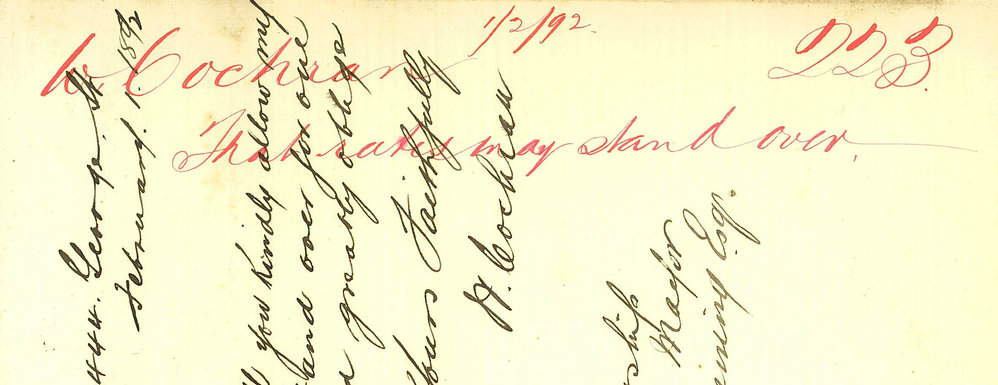 W Cochran 1/2/92. 223.
That rates may stand over.
444. George. St
February. 1st 1892
you kindly allow my
and over for one
greatly oblige
Yours Faithfully
W. Cochran
ship
Mayor
Esq.